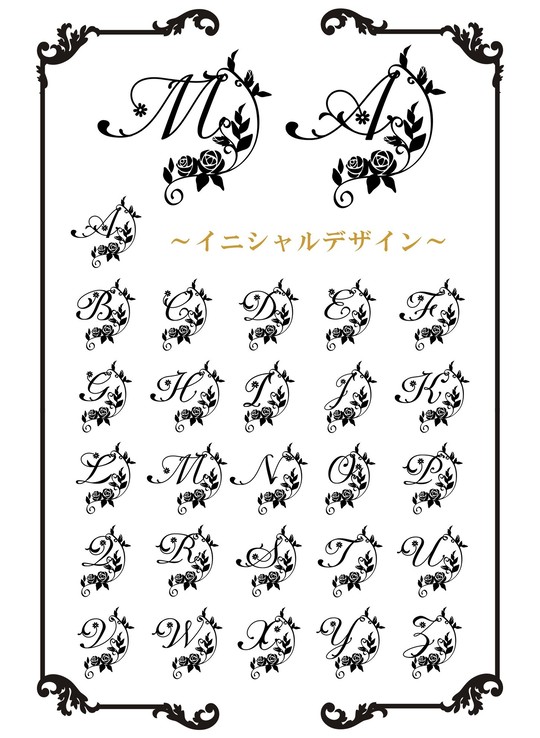 M A
A
〜イニシャルデザイン〜
B C D E F
G H I J K
L M N O P
Q R S T U
V W X Y Z